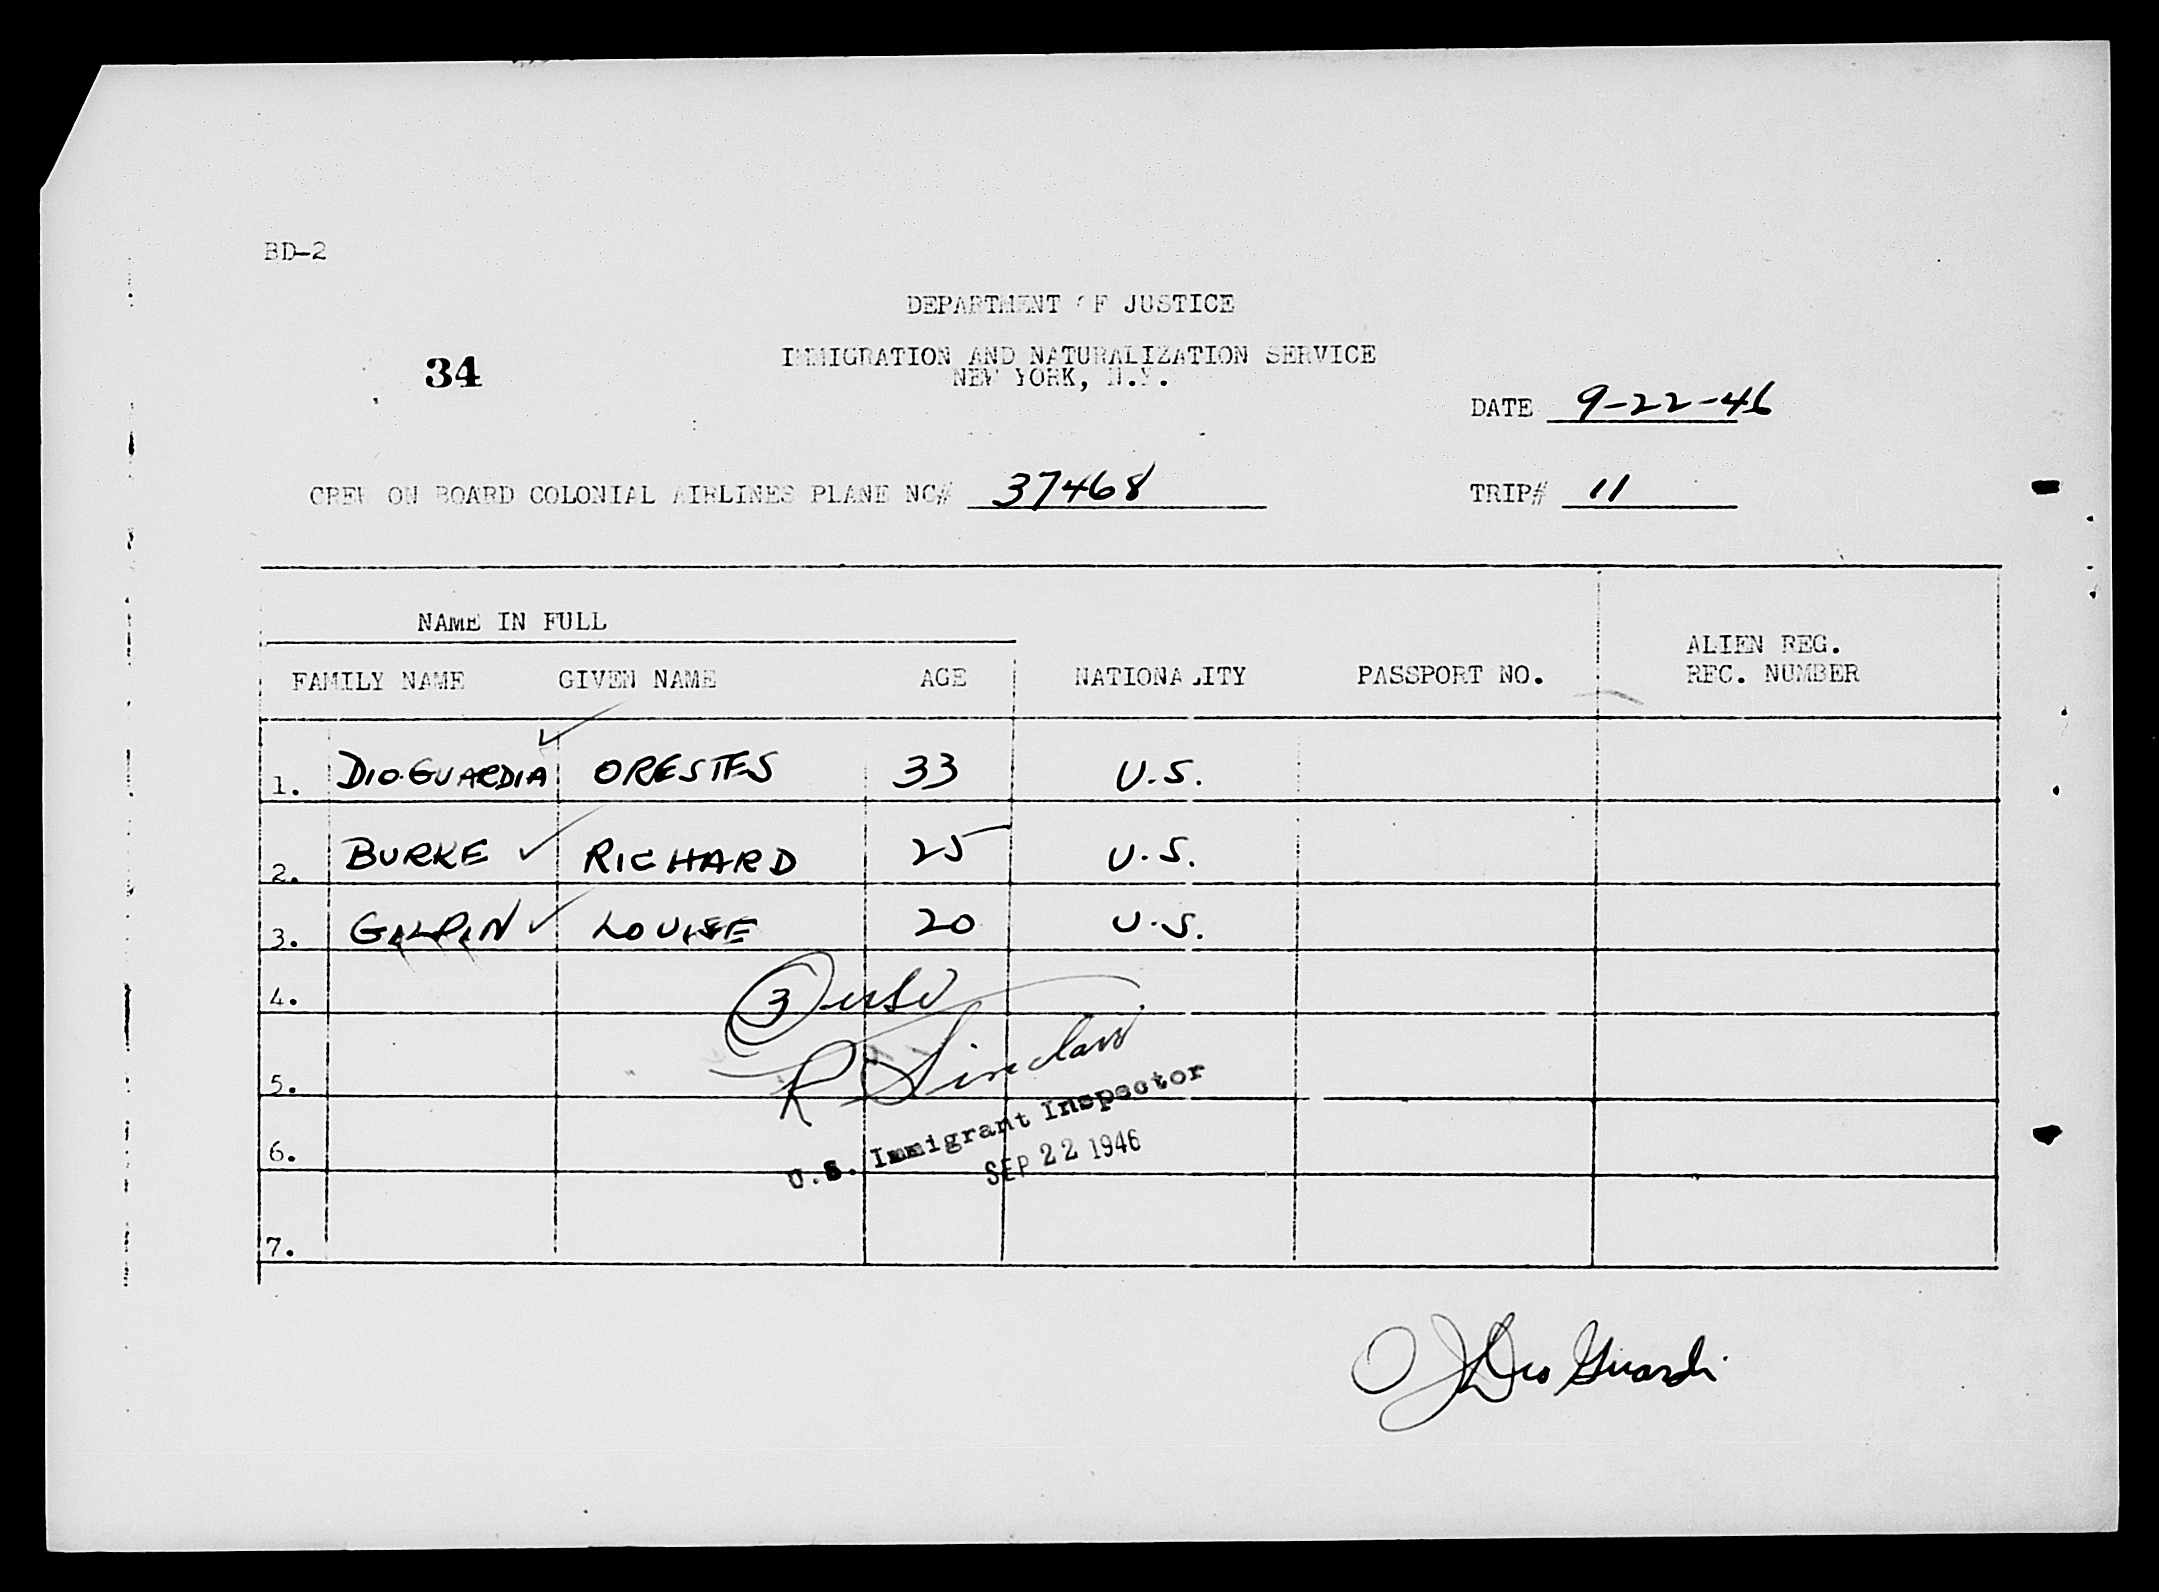 BD-2
DEPARTMENT OF JUSTICE
34
IMMIGRATION AND NATURALIZATION SERVICE
NEW YORK, N.Y.
DATE 9-22-46
CREW ON BOARD COLONIAL AIRLINES PLANE NC# 37468 TRIP# 11
NAME IN FULL
FAMILY NAME GIVEN NAME AGE NATIONALITY PASSPORT NO. ALIEN REG. REC. NUMBER
1. DIO.GUARDIA ORESTES 33 U.S.
2. BURKE RICHARD 25 U.S.
3. GALPIN LOUISE 20 U.S.
4. 3
5. R Sinclair
U.S. Immigrant Inspector
6. SEP 22 1946
7.
O J Dio Guardi